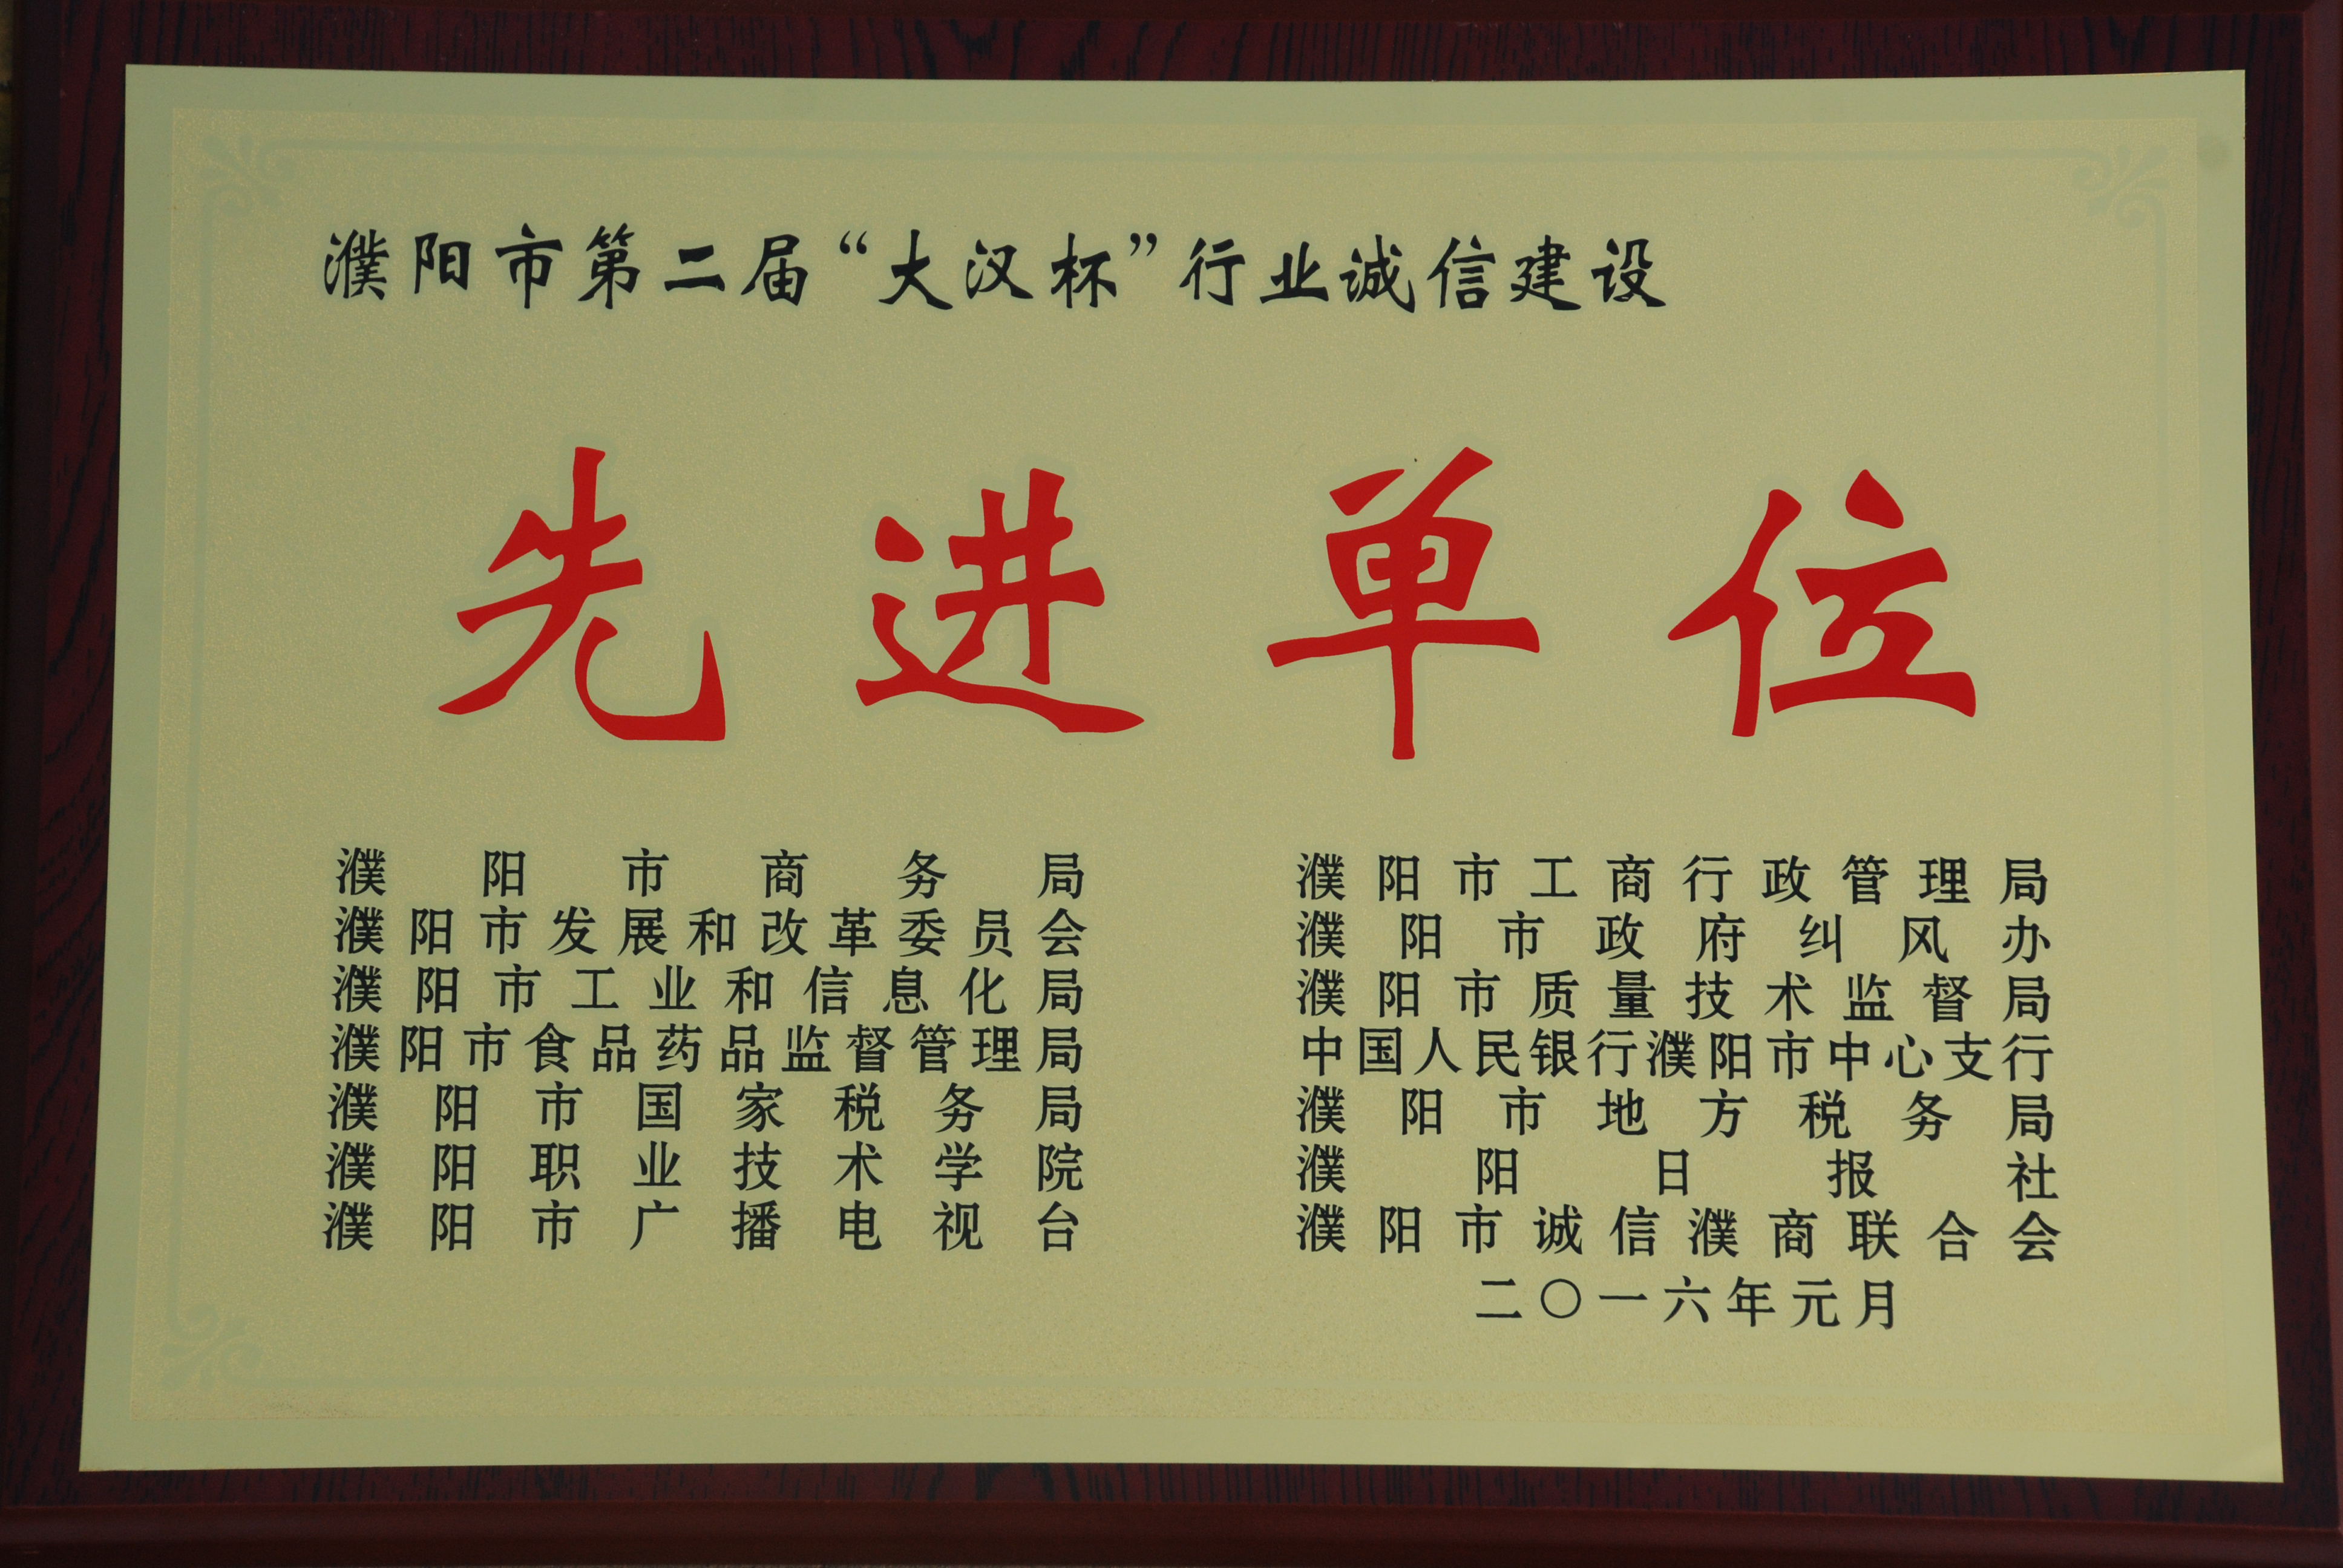 濮阳市第二届“大汉杯”行业诚信建设
先进单位
濮阳市商务局
濮阳市发展和改革委员会
濮阳市工业和信息化局
濮阳市食品药品监督管理局
濮阳市国家税务局
濮阳职业技术学院
濮阳市广播电视台
濮阳市工商行政管理局
濮阳市政府纠风办
濮阳市质量技术监督局
中国人民银行濮阳市中心支行
濮阳市地方税务局
濮阳日报社
濮阳市诚信濮商联合会
二〇一六年元月